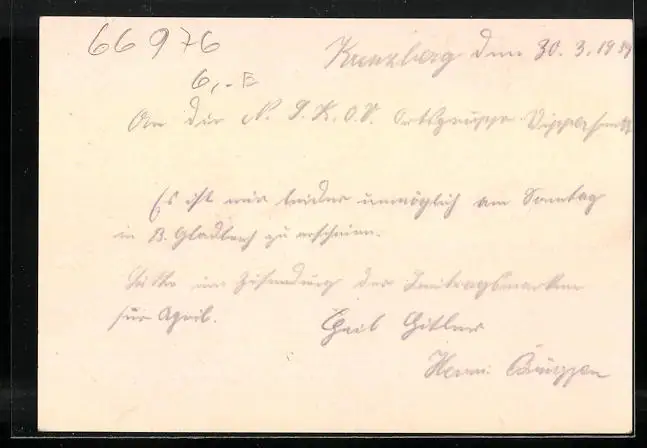 66976
6,- E
Kreuzberg den 30. 3. 19
An die N. S. K. O. V. Ortsgruppe
Es ist mir leider unmöglich am Sonntag
in B. Gladbach zu erscheinen.
Bitte um Zusendung der Beitragsmarken
für April.
Heil Hitler